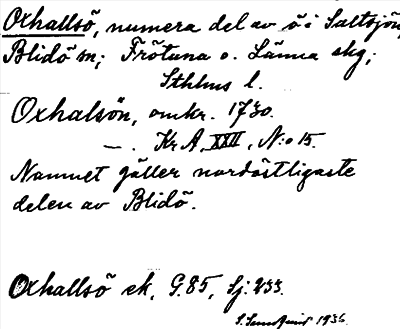 Oxhallsö, numera del av ö i Saltsjön,
Blidö sn; Frötuna o. Länna skg;
Sthlms l.
Oxhalsön, omkr. 1730.
—. Kr A, XXII, N:o 15.
Namnet gäller nordöstligaste
delen av Blidö.
Oxhallsö ek, G. 85, Sj: 233.
1936